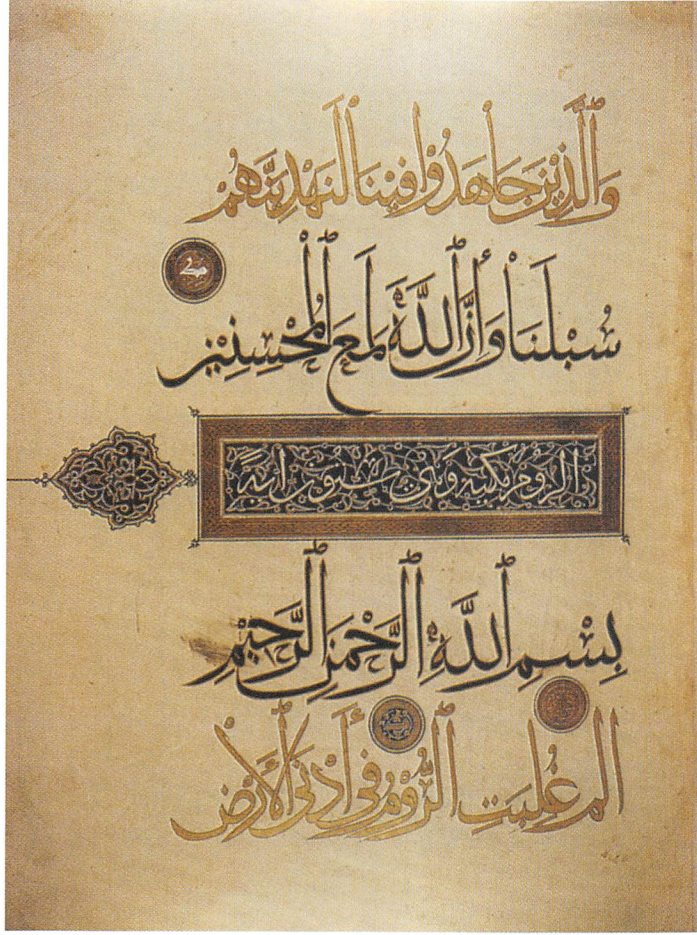 وَالَّذِيْنَ جَاهَدُوْا فِيْنَا لَنَهْدِيَنَّهُمْ
سُبُلَنَا وَأِنَّ اللَّهَ لَمَعَ الْمُحْسِنِيْنَ
الروم مكية وهي ستون اية
بِسْمِ اللَّهِ الرَّحْمٰنِ الرَّحِيْمِ
الم غُلِبَتِ الرُّوْمُ فِي أَدْنَى الْأَرْضِ